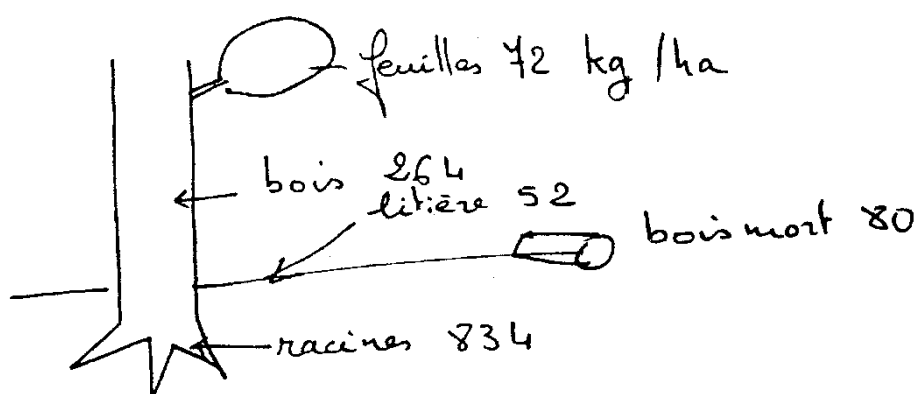 feuilles 72 kg/ha
bois 264
litière 52
bois mort 80
racines 834